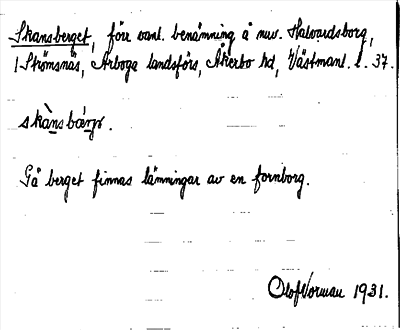 Skansberget, förr vanl. benämning å nuv. Halvardsborg,
i Strömsnäs, Arboga landsförs, Åkerbo hd, Västmanl. l. 37.
skànsbárjə.
Gå berget finnas lämningar av en fornborg.
Olof Vorman 1931.